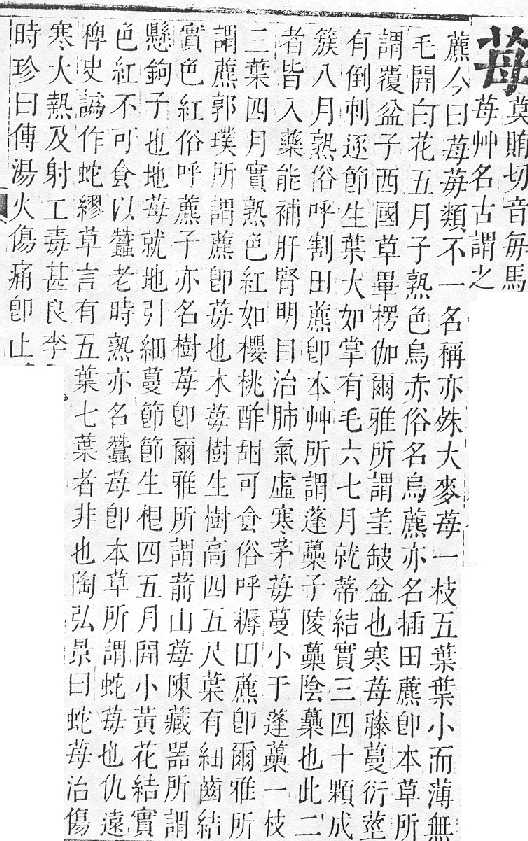 苺
莫賄切音每馬
苺艸名古謂之
藨今曰苺苺類不一名稱亦殊大麥苺一枝五葉葉小而薄無
毛開白花五月子熟色烏赤俗名烏藨亦名插田藨卽本草所
謂覆盆子西國草畢楞伽爾雅所謂堇缺盆也寒苺藤蔓衍莖
有倒刺逐節生葉大如掌有毛六七月就蒂結實三四十顆成
簇八月熟俗呼割田藨卽本艸所謂蓬虆子陵虆陰虆也此二
者皆入藥能補肝腎明目治肺氣虛寒茅苺蔓小于蓬虆一枝
三葉四月實熟色紅如櫻桃酢甜可食俗呼耨田藨卽爾雅所
謂藨郭璞所謂藨卽苺也木苺樹生樹高四五尺葉有細齒結
實色紅俗呼藨子亦名樹苺卽爾雅所謂葥山苺陳藏器所謂
懸鉤子也地苺就地引細蔓節節生根四五月開小黃花結實
色紅不可食以蠶老時熟亦名蠶苺卽本草所謂蛇苺也仇遠
稗史譌作蛇繆草言有五葉七葉者非也陶弘景曰蛇苺治傷
寒大熱及射工毒甚良李
時珍曰傅湯火傷痛卽止